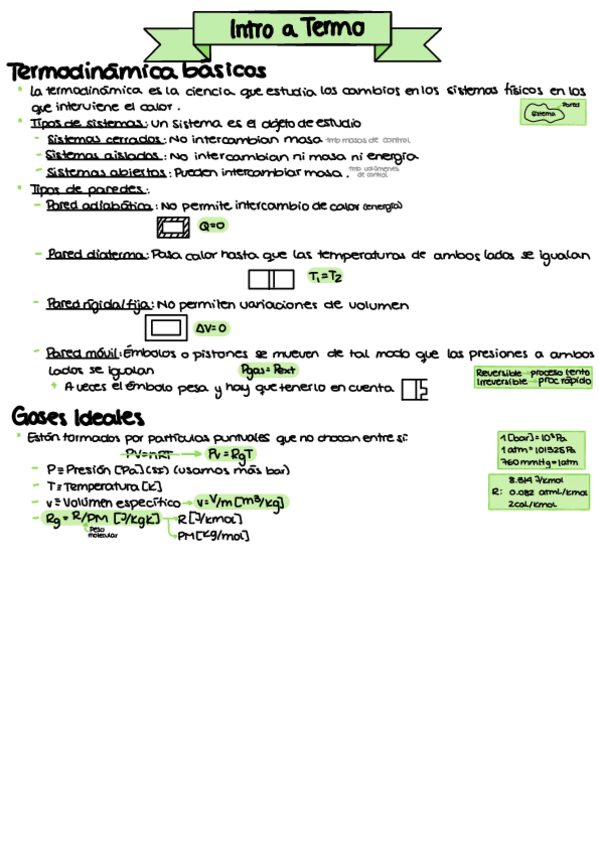 Intro a Termo
Termodinámica básicos
La termodinámica es la ciencia que estudia los cambios en los sistemas físicos en los
que interviene el calor.
Pared
Sistema
Tipos de sistemas: un sistema es el objeto de estudio
- Sistemas cerrados: No intercambian masa tmb masas de control
- Sistemas aislados: No intercambian ni masa ni energía
- Sistemas abiertos: Pueden intercambiar masa. tmb volúmenes
de control
Tipos de paredes:
- Pared adiabática: No permite intercambio de calor (energía)
Q=0
- Pared diaterma: Pasa calor hasta que las temperaturas de ambos lados se igualan
T₁=T₂
- Pared rígida/fija: No permiten variaciones de volumen
ΔV=0
- Pared móvil: Émbolos o pistones se mueven de tal modo que las presiones a ambos
lados se igualan Pgas=Pext
+ A veces el émbolo pesa y hay que tenerlo en cuenta
Reversible → proceso lento
Irreversible → proc rápido
Gases Ideales
Están formados por partículas puntuales que no chocan entre sí:
PV=nRT → Pv=RgT
- P≡Presión [Pa] (SI) (usamos más bar)
- T≡Temperatura [K]
- v≡Volumen específico → v=V/m [m³/kg]
- Rg=R/PM [J/kgK] → R[J/kmol]
Peso
molecular
→ PM[kg/mol]
1[bar]=10⁵Pa
1atm=101325Pa
760mmHg=1atm
8.314 J/Kmol
R: 0.082 atmL/Kmol
2cal/Kmol